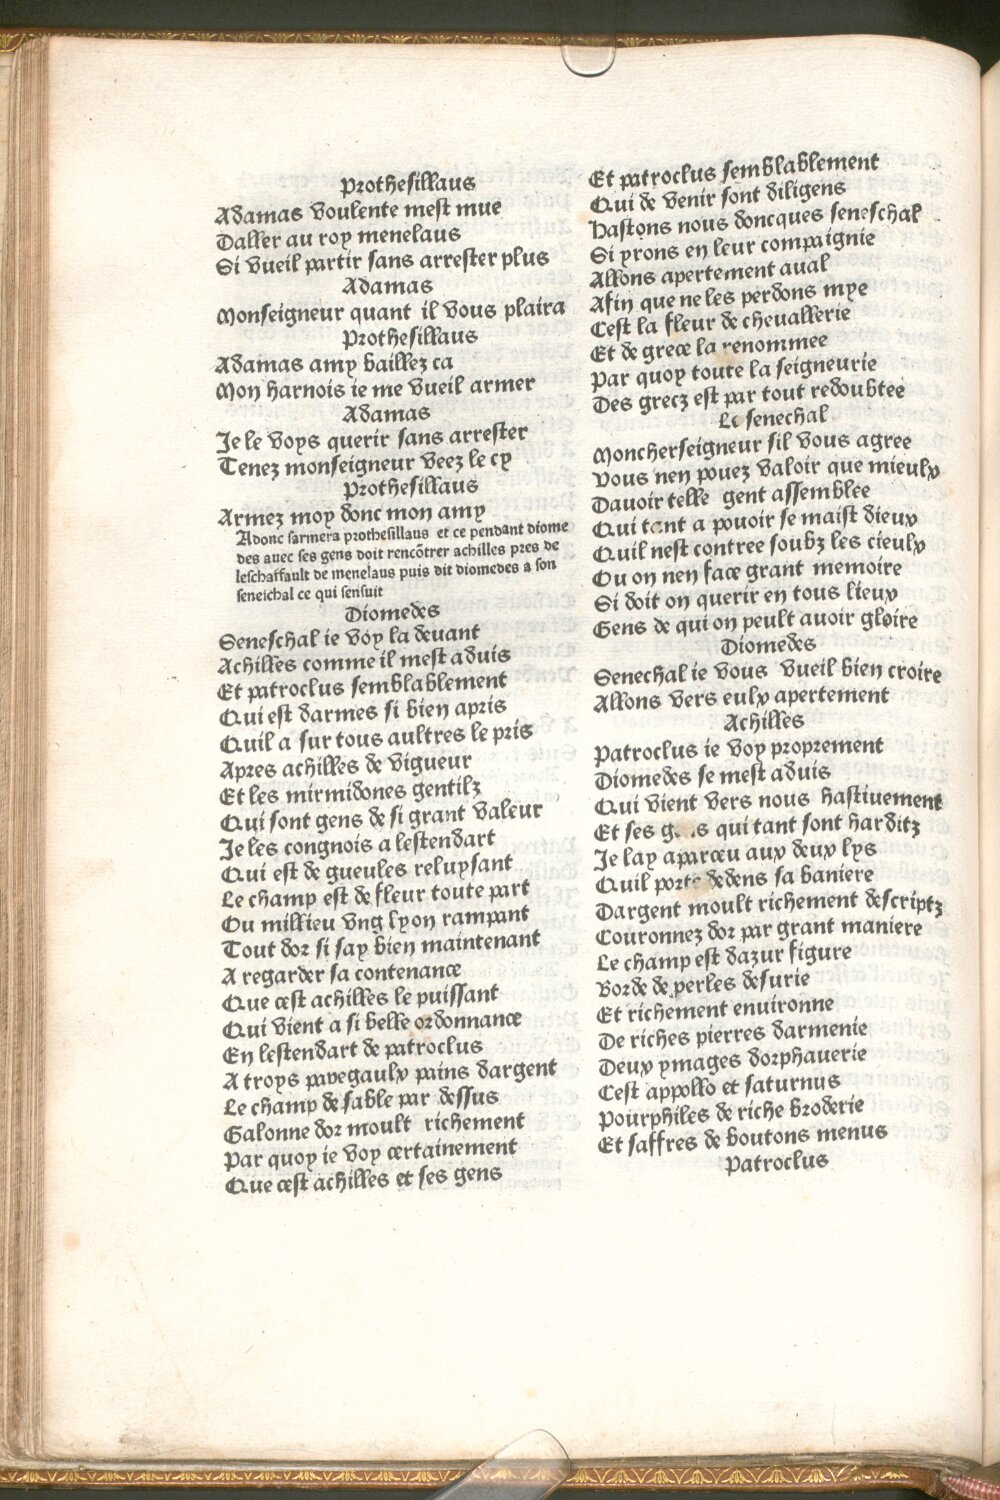 Prothesillaus
Adamas voulente mest mue
Daller au roy menelaus
Si vueil partir sans arrester plus
Adamas
Monseigneur quant il vous plaira
Prothesillaus
Adamas amy baillez ca
Mon harnois ie me vueil armer
Adamas
Je le voys querir sans arrester
Tenez monseigneur veez le cy
Prothesillaus
Armez moy donc mon amy
Adonc sarmera prothesillaus et ce pendant diome
des auec ses gens doit rencõtrer achilles pres de
leschaffault de menelaus puis dit diomedes a son
seneichal ce qui sensuit
Diomedes
Seneschal ie voy la deuant
Achilles comme il mest aduis
Et patroclus semblablement
Qui est darmes si bien apris
Quil a sur tous aultres le pris
Apres achilles de vigueur
Et les mirmidones gentilz
Qui sont gens de si grant valeur
Je les congnois a lestendart
Qui est de gueules reluysant
Le champ est de fleur toute part
Ou millieu vng lyon rampant
Tout dor si say bien maintenant
A regarder sa contenance
Que cest achilles le puissant
Qui vient a si belle ordonnance
En lestendart de patroclus
A troys papegaulx pains dargent
Le champ de sable par dessus
Galonne dor moult richement
Par quoy ie voy certainement
Que cest achilles et ses gens
Et patroclus semblablement
Qui de venir sont diligens
Hastons nous doncques seneschal
Si yrons en leur compaignie
Allons apertement aual
Afin que ne les perdons mye
Cest la fleur de cheuallerie
Et de grece la renommee
Par quoy toute la seigneurie
Des grecz est par tout redoubtee
Le senechal
Moncherseigneur sil vous agree
Vous nen pouez valoir que mieulx
Dauoir telle gent assemblee
Qui tant a pouoir se maist dieux
Quil nest contree soubz les cieulx
Ou on nen face grant memoire
Si doit on querir en tous lieux
Gens de qui on peult auoir gloire
Diomedes
Senechal ie vous vueil bien croire
Allons vers eulx apertement
Achilles
Patroclus ie voy proprement
Diomedes se mest aduis
Qui vient vers nous hastiuement
Et ses qui tant sont harditz
Je lay aparceu aux deux lys
Quil porte dedens sa baniere
Dargent moult richement descriptz
Couronnez dor par grant maniere
Le champ est dazur figure
Borde de perles desurie
Et richement enuironne
De riches pierres darmenie
Deux ymages dorphauerie
Cest appollo et saturnus
Pourphiles de riche broderie
Et saffres de boutons menus
Patroclus